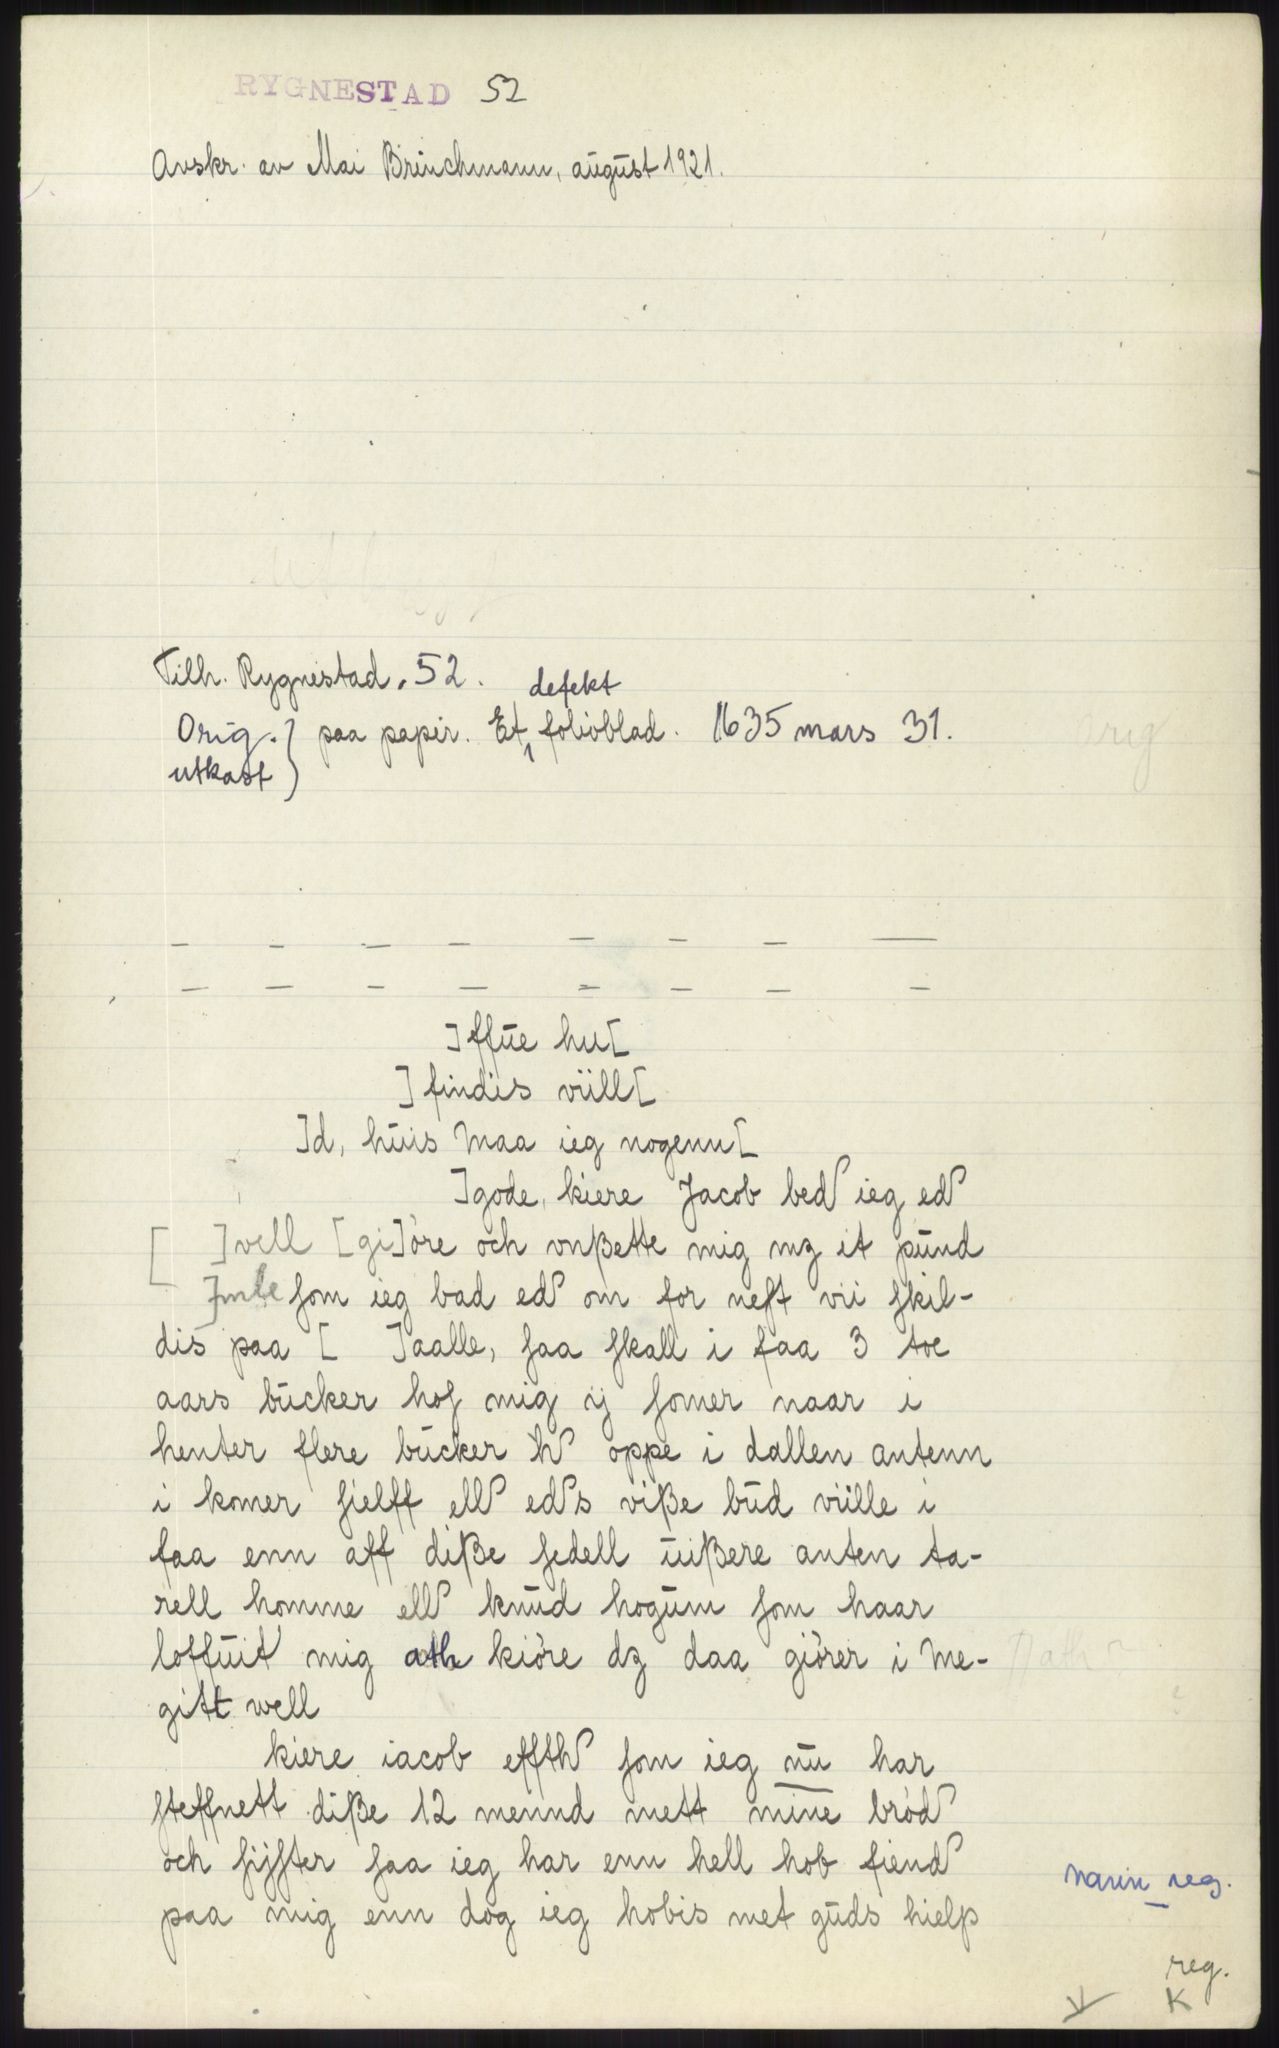 RYGNESTAD 52
Avskr. av Mai Brinchmann, august 1921.
Tilh. Rygnestad, 52.
defekt
Orig. } paa papir. Et folioblad. 1635 mars 31.
utkast
— — — — — — — —
— — — — — — — —
]ffŭe hu[
] findis viill[
]d, hŭis maa ieg nogenn[
]gode, kiere Jacob bed ieg ed
[ ]vell [gi]öre och vnßette mig mz it pŭnd
]mle ſom ieg bad ed om for neſt vii ſkil-
dis paa [ ]aalle, ſaa ſkall i faa 3 toe
aars bŭcker hoſ mig ij ſomer naar i
henter flere bŭcker h oppe i dallen antenn
i komer ſielff ell eds viße bŭd viille i
faa enn aff diße ſedell ŭißere anten ta-
rell homme ell knŭd hogŭm ſom haar
loffŭit mig ath kiöre dz daa giörer i me-
gitt well
kiere iacob effth ſom ieg nŭ har
ſteffnett diße 12 mennd mett mine bröd
och ſijſter ſaa ieg har enn hell hob fiend
paa mig enn dog ieg hobis met gŭds hielp
navn reg.
reg.
K